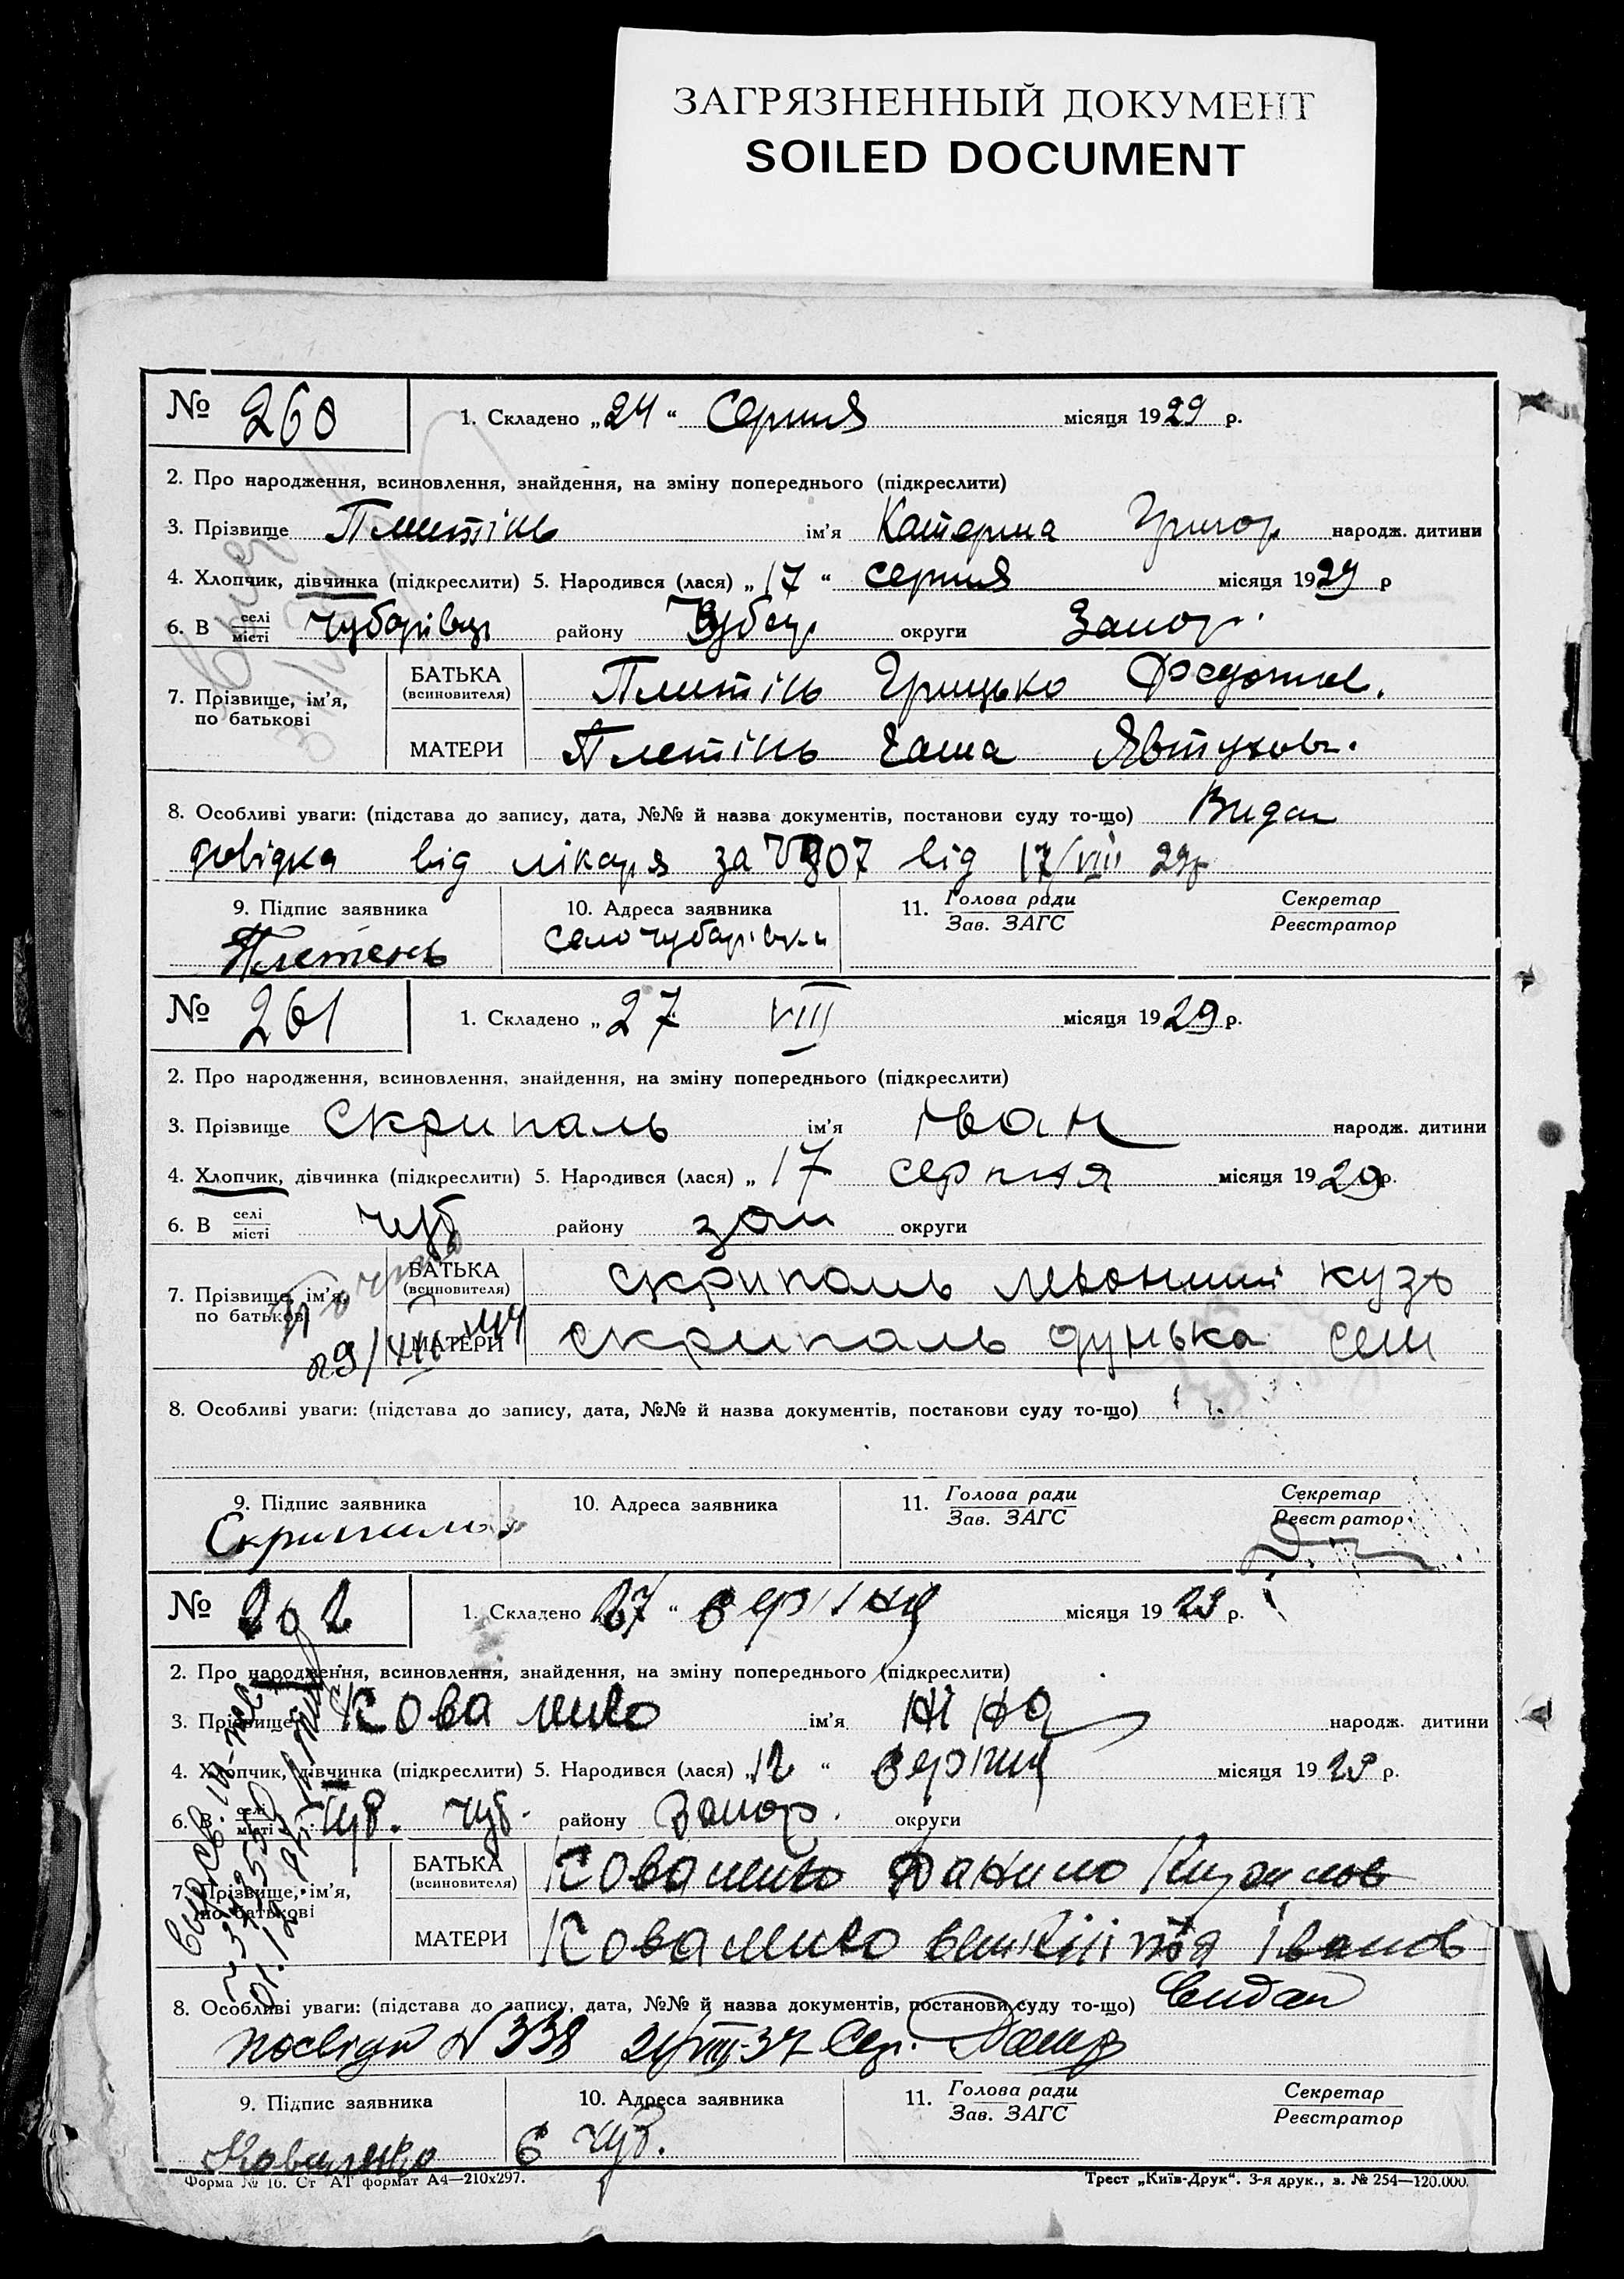 ЗАГРЯЗНЕННЫЙ ДОКУМЕНТ
SOILED DOCUMENT
№ 260 1. Складено „24“ Серпня місяця 1929 р.
2. Про народження, всиновлення, знайдення, на зміну попереднього (підкреслити)
3. Прізвище Плетінь ім'я Катерина Григор народж. дитини
4. Хлопчик, дівчинка (підкреслити) 5. Народився (лася) „17“ серпня місяця 1929 р
6. В селі місті Чубарівці району Чубар округи Запор.
7. Прізвище, ім'я, по батькові
БАТЬКА (всиновителя) Плетінь Грицько Федотов.
МАТЕРИ Плетінь Гаша Явтухов.
8. Особливі уваги: (підстава до запису, дата, №№ й назва документів, постанови суду то-що) Видан
довідка від лікаря за № 807 від 17/VIII 29р
9. Підпис заявника 10. Адреса заявника 11. Голова ради Зав. ЗАГС Секретар Реєстратор
Плетень село Чубарівки
№ 261 1. Складено „27 VIII місяця 1929 р.
2. Про народження, всиновлення, знайдення, на зміну попереднього (підкреслити)
3. Прізвище Скрипаль ім'я Іван народж. дитини
4. Хлопчик, дівчинка (підкреслити) 5. Народився (лася) „17 серпня місяця 1929р.
6. В селі місті Чуб району зап округи
7. Прізвище, ім'я, по батькові
БАТЬКА (всиновителя) Скрипаль кузь
МАТЕРИ Скрипаль дунька сем
8. Особливі уваги: (підстава до запису, дата, №№ й назва документів, постанови суду то-що)
9. Підпис заявника 10. Адреса заявника 11. Голова ради Зав. ЗАГС Секретар Реєстратор
Скрипаль
№ 262 1. Складено 27 “ серпня місяця 1929 р.
2. Про народження, всиновлення, знайдення, на зміну попереднього (підкреслити)
3. Прізвище Коваленко ім'я Ніна народж. дитини
4. Хлопчик, дівчинка (підкреслити) 5. Народився (лася) „12“ серпня місяця 1929 р.
6. В селі місті Чуб. Чуб. району Запор. округи
7. Прізвище, ім'я, по батькові
БАТЬКА (всиновителя) Коваленко Данило
МАТЕРИ Коваленко Іванов
8. Особливі уваги: (підстава до запису, дата, №№ й назва документів, постанови суду то-що) Видан
посвідч N 338
9. Підпис заявника 10. Адреса заявника 11. Голова ради Зав. ЗАГС Секретар Реєстратор
Коваленко с Чуб.
Форма № 16. Ст АТ формат А4—210х297. Трест „Київ-Друк“. 3-я друк., з. № 254—120.000.